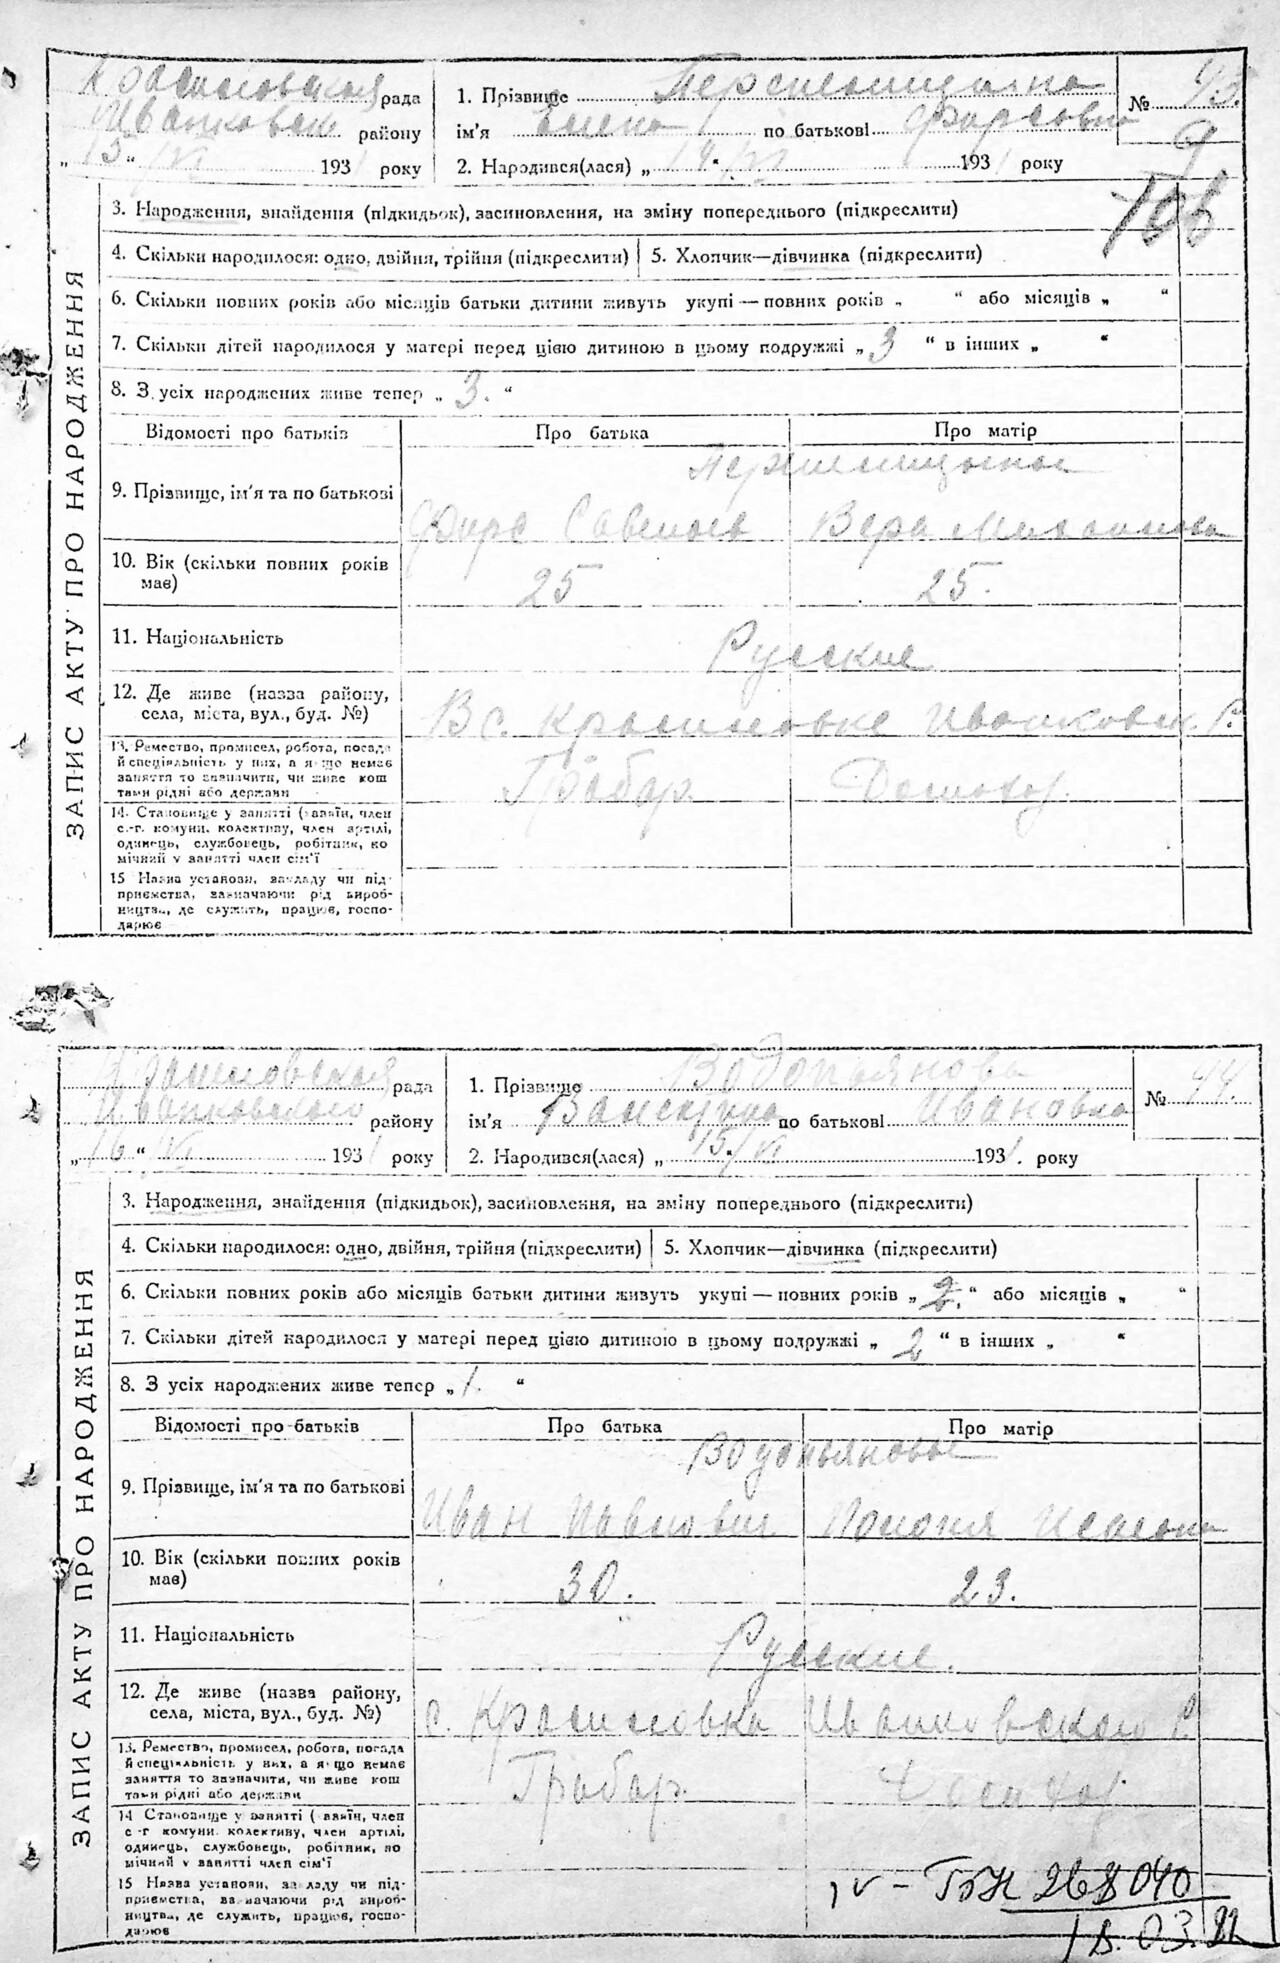 рада
району
193 року
1. Прізвище
ім'я Елена по батькові Фирсовна
2. Народився(лася) „ 14 “ VI 1931 року
№ 43.
9
3. Народження, знайдення (підкидьок), засиновлення, на зміну попереднього (підкреслити)
4. Скільки народилося: одно, двійня, трійня (підкреслити)
5. Хлопчик—дівчинка (підкреслити)
6. Скільки повних років або місяців батьки дитини живуть укупі — повних років „ “ або місяців „ “
7. Скільки дітей народилося у матері перед цією дитиною в цьому подружжі „ 3 “ в інших „ “
8. З усіх народжених живе тепер „ 3. “
Відомості про батьків
Про батька
Про матір
9. Прізвище, ім'я та по батькові
Фирс Савельев
Вера
10. Вік (скільки повних років має)
25
25.
11. Національність
Русские
12. Де живе (назва району, села, міста, вул., буд. №)
В с. Ивашковск. Р.
13. Ремество, промисел, робота, посада
й спеціяльність у них, а якщо немає
заняття то зазначити, чи живе кош
тами рідні або держави
Грабар.
Домохоз.
14. Становище у занятті (хазяїн, член
с.-г. комуни, колективу, член артілі,
одинець, службовець, робітник, по
мічний у занятті член сім'ї
15 Назва установи, закладу чи під-
приємства, зазначаючи рід вироб-
ництва, де служить, працює, госпо-
дарює
ЗАПИС АКТУ ПРО НАРОДЖЕННЯ
рада
Ивашковского району
„ 16 “ VI 1931 року
1. Прізвище Водопьянова
ім'я Валентина по батькові Ивановна
2. Народився(лася) „ 15/VI 1931. року
№ 44.
3. Народження, знайдення (підкидьок), засиновлення, на зміну попереднього (підкреслити)
4. Скільки народилося: одно, двійня, трійня (підкреслити)
5. Хлопчик—дівчинка (підкреслити)
6. Скільки повних років або місяців батьки дитини живуть укупі — повних років „ 2. “ або місяців „ “
7. Скільки дітей народилося у матері перед цією дитиною в цьому подружжі „ 2 “ в інших „ “
8. З усіх народжених живе тепер „ 1. “
Відомості про батьків
Про батька
Про матір
Водопьяновы
9. Прізвище, ім'я та по батькові
Иван Павлович
10. Вік (скільки повних років має)
30.
23.
11. Національність
Русские.
12. Де живе (назва району, села, міста, вул., буд. №)
с. Ивашковского Р.
13. Ремество, промисел, робота, посада
й спеціяльність у них, а якщо немає
заняття то зазначити, чи живе кош
тами рідні або держави
Грабар.
14 Становище у занятті (хазяїн, член
с-г комуни, колективу, член артілі,
одинець, службовець, робітник, по
мічний у занятті член сім'ї
15 Назва установи, закладу чи під-
приємства, зазначаючи рід вироб-
ництва, де служить, працює, госпо-
дарює
ЗАПИС АКТУ ПРО НАРОДЖЕННЯ